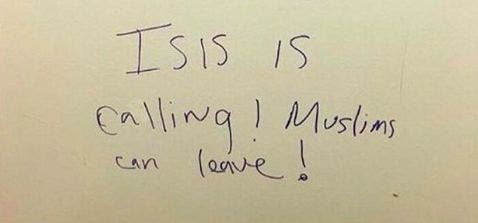 ISIS IS
calling! Muslims
can leave!